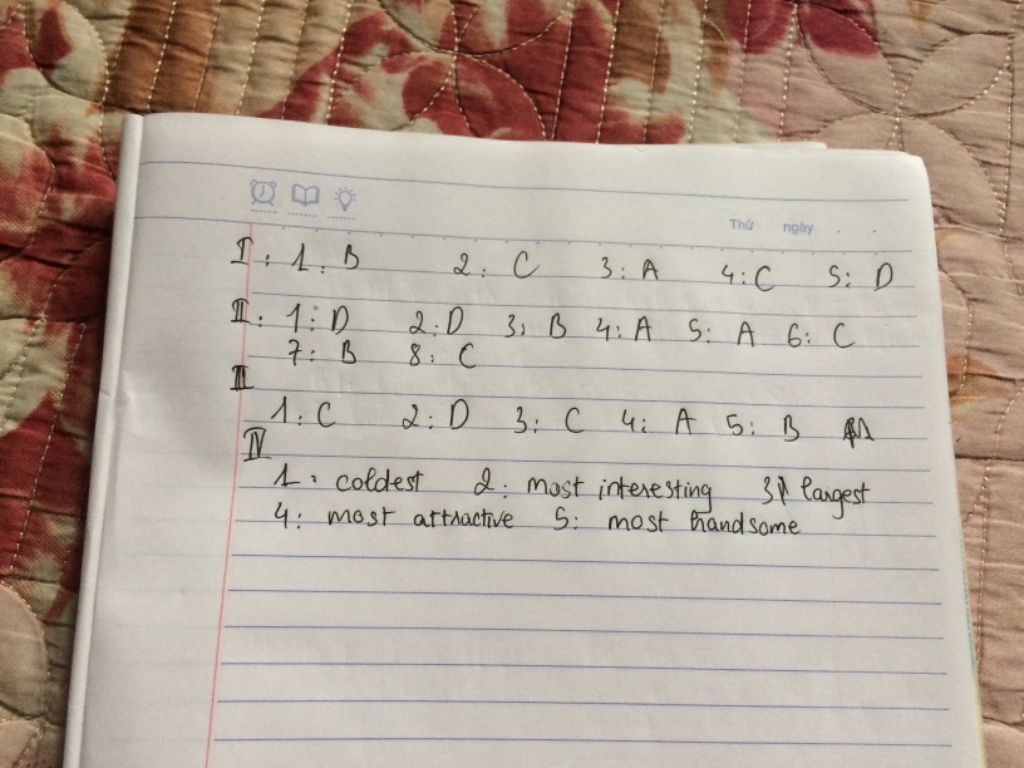 Thứ ngày
I: 1: B 2: C 3: A 4: C 5: D
II: 1: D 2: D 3: B 4: A 5: A 6: C
7: B 8: C
III
1: C 2: D 3: C 4: A 5: B
IV
1: coldest 2: most interesting 3: largest
4: most attractive 5: most handsome